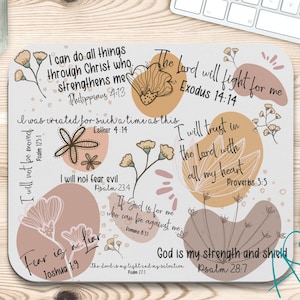 I can do all things
through Christ who
strengthens me
Philippians 4:13
The Lord will fight for me
Exodus 14:14
I was created for such a time as this
Esther 4:14
I will trust in
the Lord with
all my heart
Proverbs 3:5
I will not be moved
Psalm 125:1
I will not fear evil
Psalm 23:4
If God is for me
who can be against me
Romans 8:31
Fear is a Liar
Joshua 1:9
The Lord is my light and my salvation
Psalm 27:1
God is my strength and shield
Psalm 28:7